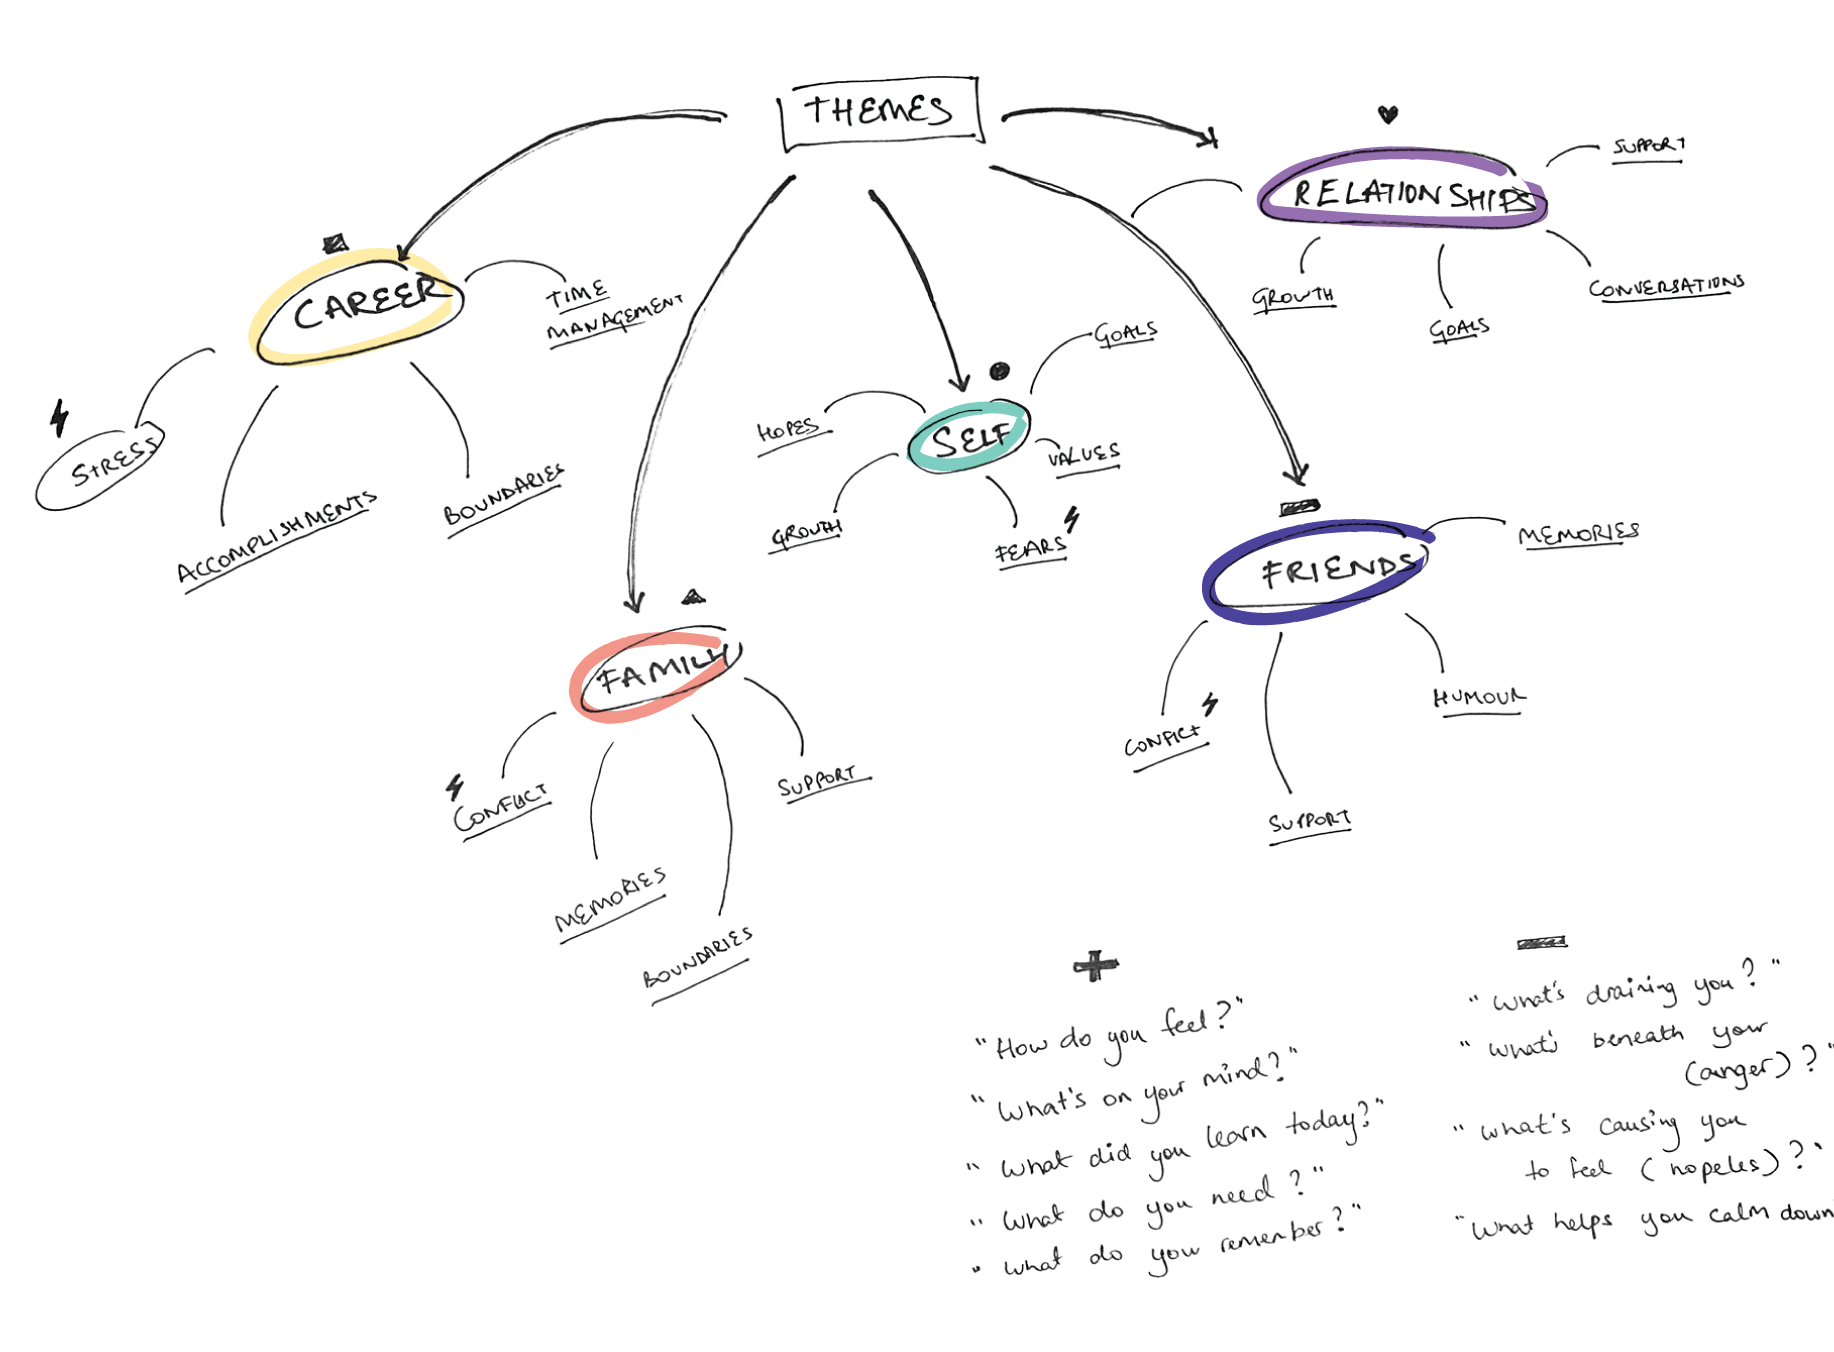 THEMES
RELATIONSHIPS
SUPPORT
GROWTH
GOALS
CONVERSATIONS
CAREER
TIME
MANAGEMENT
STRESS
ACCOMPLISHMENTS
BOUNDARIES
SELF
GOALS
HOPES
VALUES
GROWTH
FEARS
FRIENDS
MEMORIES
CONFICT
HUMOUR
SUPPORT
FAMILY
CONFLICT
SUPPORT
MEMORIES
BOUNDARIES
+
"How do you feel?"
"What's on your mind?"
"What did you learn today?"
"What do you need?"
"What do you remember?"
–
"What's draining you?"
"What's beneath your
(anger)?"
"What's causing you
to feel (hopeles)?"
"What helps you calm down